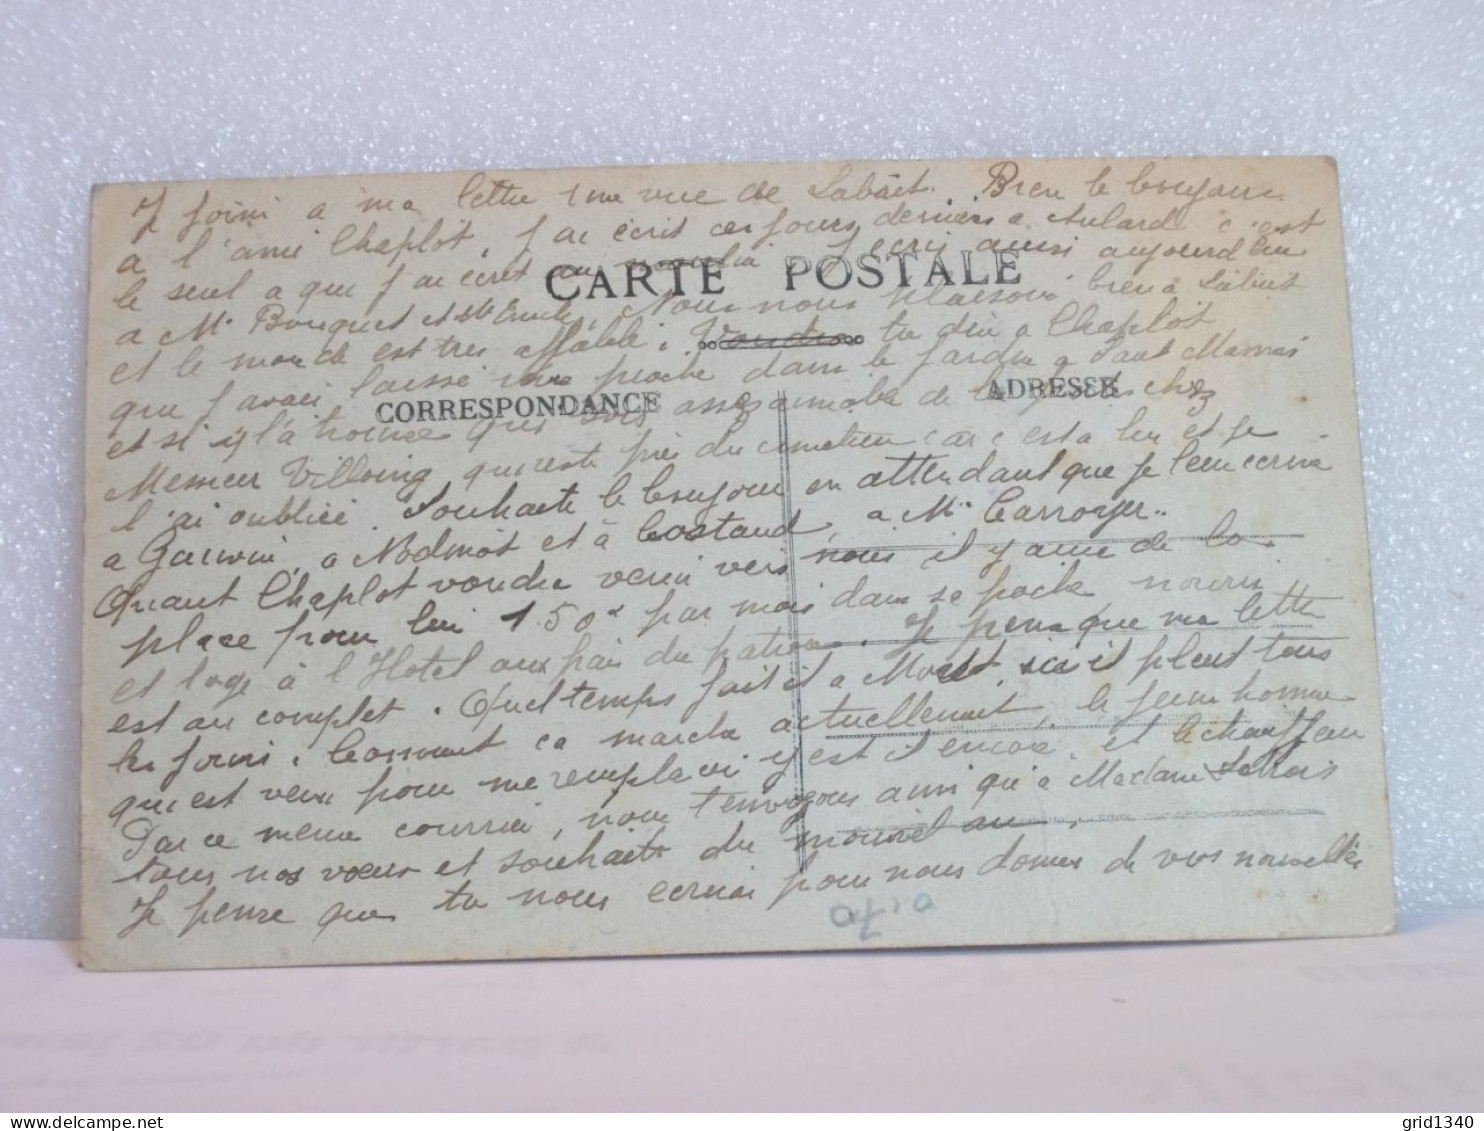 Je joins a ma lettre une vue de Labàit. Bien le bonjour
a l'ami Chaplot, j'ai écrit ces jours derniers a Aulard c'est
le seul a qui j'ai écrit j'ecris aussi aujourd'hui
CARTE POSTALE
a Mr Bouquet et Nous nous plaisons bien a Labait
et le monde est tres affable. Voudra tu dire a Chaplot
que j'avais laissé une pioche dans le jardin a Saut Mamès
CORRESPONDANCE
ADRESSE
et si il la trouve qui sois assez aimable de la chez
Messieur Villoing qui reste près du cimetiere car c'est a lui et je
l'ai oubliée. Souhaite le bonjour en attendant que je leur ecrive
a Gauvin, a Nodmot et à Costaud, a Mr Carroyer..
Quant Chaplot voudra venir vers nous il y aura de la
place pour lui 150 par mois dans sa poche nourri
et logé à l'Hotel aux frais du patron. Je pense que ma lettre
est au complet. Quel temps fait il a Moret, ici il pleut tous
les jours. Comment ça marche actuellement, le jeune homme
qui est venu pour me remplacer y est il encore, et le chauffeur
Par ce même courrier, nous t'envoyons ainsi qu'à Madame
tous nos vœux et souhaits du nouvel an.
Je pense que tu nous ecriras pour nous donner de vos nouvelles
grid1340